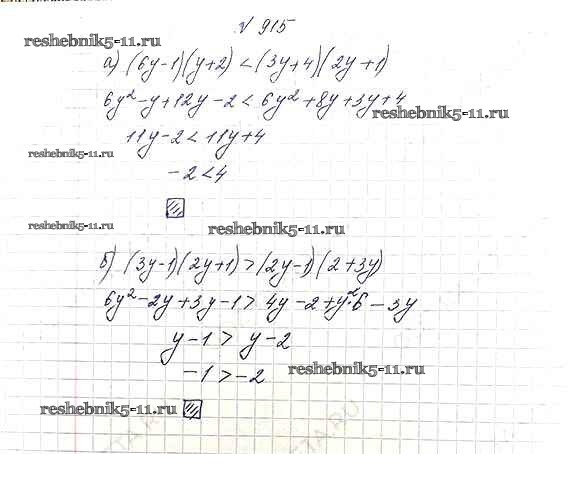 № 915
reshebnik5-11.ru
а) (6y-1)(y+2) < (3y+4)(2y+1)
6y²-y+12y-2 < 6y²+8y+3y+4
reshebnik5-11.ru
11y-2 < 11y+4
reshebnik5-11.ru
-2<4
reshebnik5-11.ru
reshebnik5-11.ru
б) (3y-1)(2y+1) > (2y-1)(2+3y)
6y²-2y+3y-1 > 4y-2+y²·6-3y
y-1 > y-2
reshebnik5-11.ru
-1 > -2
reshebnik5-11.ru